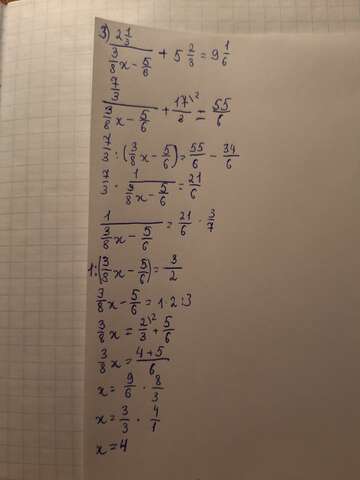 3) 2 1/3 / (3/8 x - 5/6) + 5 2/3 = 9 1/6
7/3 / (3/8 x - 5/6) + 17\2/3 = 55/6
7/3 : (3/8 x - 5/6) = 55/6 - 34/6
7/3 · 1/(3/8 x - 5/6) = 21/6
1/(3/8 x - 5/6) = 21/6 · 3/7
1:(3/8 x - 5/6) = 3/2
3/8 x - 5/6 = 1·2:3
3/8 x = 2\2/3 + 5/6
3/8 x = (4+5)/6
x = 9/6 · 8/3
x = 3/3 · 4/1
x = 4